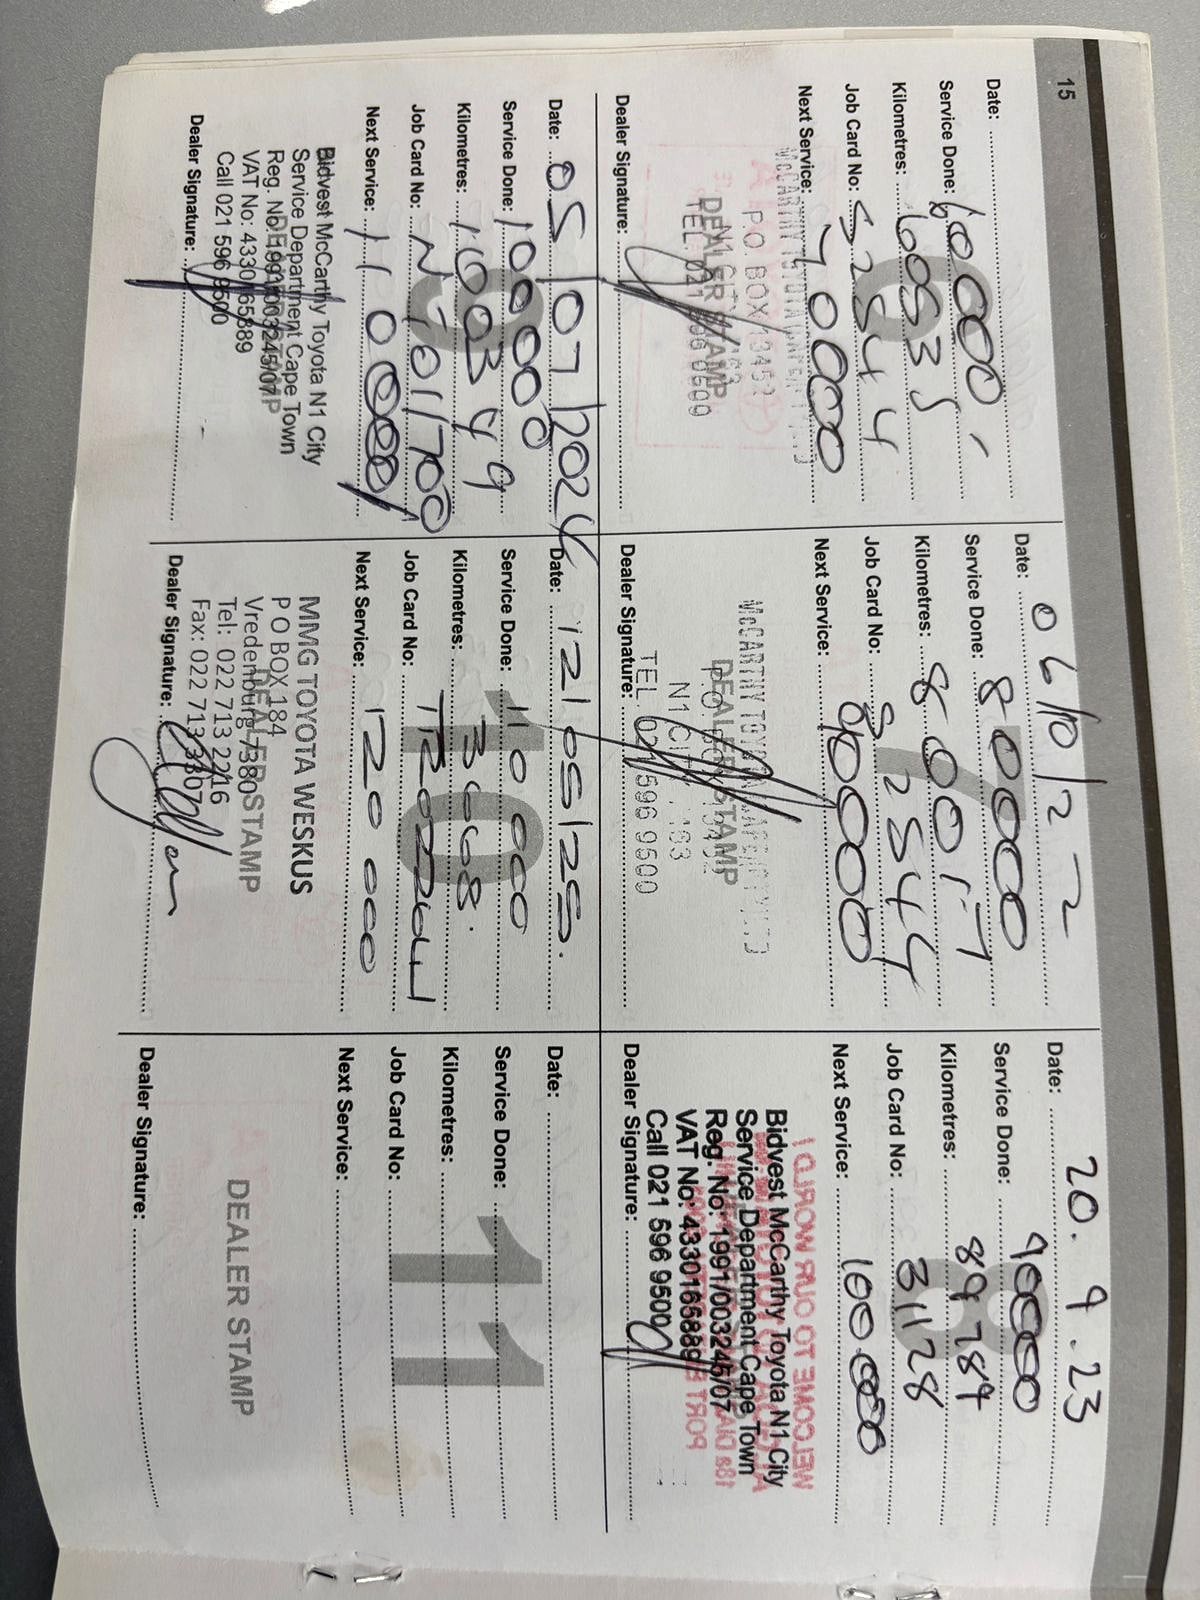 15
Date:
Service Done: 60000
Kilometres: 60535
Job Card No: S2544
Next Service: 70000
McCARTHY TOYOTA
P.O. BOX 13452
N1 CITY
DEALER STAMP
TEL: 021 596 9500
Dealer Signature:
Date: 06/10/22
Service Done: 80000
Kilometres: 80017
Job Card No: 82544
Next Service: 90000
7
McCARTHY TOYOTA
DEALER STAMP
N1 CITY
TEL 021 596 9500
Dealer Signature:
Date: 20.9.23
Service Done: 90000
Kilometres: 89789
Job Card No: 31128
Next Service: 100.000
8
WELCOME TO OUR WORLD
Bidvest McCarthy Toyota N1 City
Service Department Cape Town
Reg. No: 1991/003245/07
VAT No: 4330165889
Call 021 596 9500
Dealer Signature:
Date: 05/07/2024
Service Done: 100000
Kilometres: 100349
Job Card No: N1011700
Next Service: 110000
9
Bidvest McCarthy Toyota N1 City
Service Department Cape Town
Reg. No: 1991/003245/07
DEALER STAMP
VAT No: 4330165889
Call 021 596 9500
Dealer Signature:
Date: 12/05/25.
Service Done: 110 000
Kilometres: 113668.
Job Card No:
Next Service: 120 000
10
MMG TOYOTA WESKUS
P O BOX 184
Vredenburg 7380
DEALER STAMP
Tel: 022 713 2216
Fax: 022 713 3307
Dealer Signature:
Date:
Service Done:
Kilometres:
Job Card No:
Next Service:
11
DEALER STAMP
Dealer Signature: